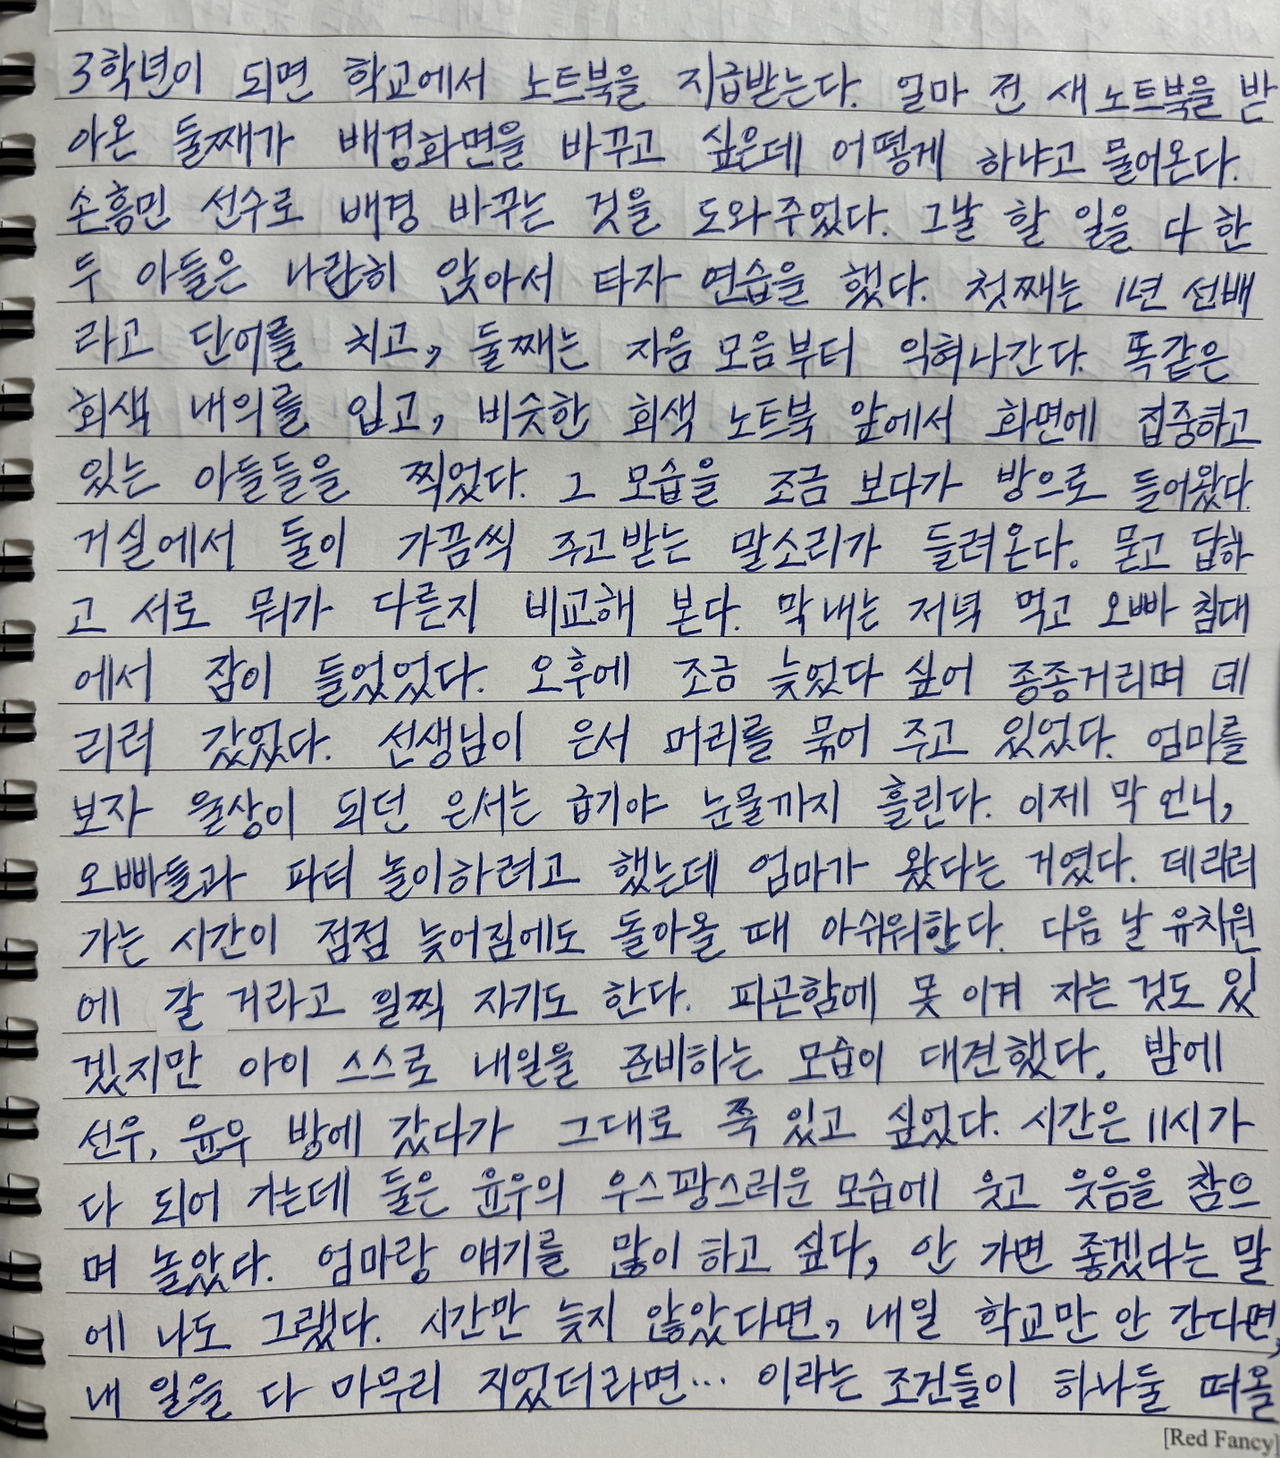 3학년이 되면 학교에서 노트북을 지급받는다. 얼마 전 새 노트북을 받
아온 둘째가 배경화면을 바꾸고 싶은데 어떻게 하냐고 물어온다.
손흥민 선수로 배경 바꾸는 것을 도와주었다. 그날 할 일을 다 한
두 아들은 나란히 앉아서 타자 연습을 했다. 첫째는 1년 선배
라고 단어를 치고, 둘째는 자음 모음부터 익혀나간다. 똑같은
회색 내의를 입고, 비슷한 회색 노트북 앞에서 화면에 집중하고
있는 아들들을 찍었다. 그 모습을 조금 보다가 방으로 들어왔다.
거실에서 둘이 가끔씩 주고받는 말소리가 들려온다. 묻고 답하
고 서로 뭐가 다른지 비교해 본다. 막내는 저녁 먹고 오빠 침대
에서 잠이 들었었다. 오후에 조금 늦었다 싶어 종종거리며 데
리러 갔었다. 선생님이 은서 머리를 묶어 주고 있었다. 엄마를
보자 울상이 되던 은서는 급기야 눈물까지 흘린다. 이제 막 언니,
오빠들과 파티 놀이하려고 했는데 엄마가 왔다는 거였다. 데리러
가는 시간이 점점 늦어짐에도 돌아올 때 아쉬워한다. 다음 날 유치원
에 갈 거라고 일찍 자기도 한다. 피곤함에 못 이겨 자는 것도 있
겠지만 아이 스스로 내일을 준비하는 모습이 대견했다. 밤에
선우, 윤우 방에 갔다가 그대로 쭉 있고 싶었다. 시간은 11시가
다 되어 가는데 둘은 윤우의 우스꽝스러운 모습에 웃고 웃음을 참으
며 놀았다. 엄마랑 얘기를 많이 하고 싶다, 안 가면 좋겠다는 말
에 나도 그랬다. 시간만 늦지 않았다면, 내일 학교만 안 간다면,
내 일을 다 마무리 지었더라면… 이라는 조건들이 하나둘 떠올
[Red Fancy]